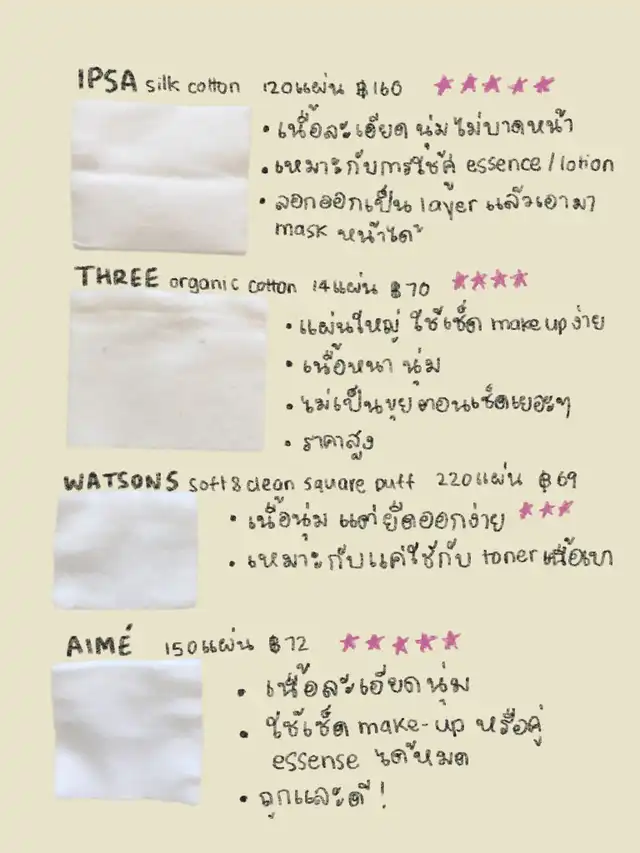 IPSA silk cotton 120แผ่น ฿160 ★★★★★
• เนื้อละเอียด นุ่ม ไม่บาดหน้า
• เหมาะกับการใช้คู่ essence/lotion
• ลอกออกเป็น layer แล้วเอามา
mask หน้าได้
THREE organic cotton 14แผ่น ฿70 ★★★★
• แผ่นใหญ่ ใช้เช็ด make up ง่าย
• เนื้อหนา นุ่ม
• ไม่เป็นขุยตอนเช็ดเยอะๆ
• ราคาสูง
WATSONS soft & clean square puff 220แผ่น ฿69
• เนื้อนุ่ม แต่ยืดออกง่าย ★★★
• เหมาะกับแค่ใช้กับ toner เนื้อเบา
AIMÉ 150แผ่น ฿72 ★★★★★
• เนื้อละเอียดนุ่ม
• ใช้เช็ด make-up หรือคู่
essense ได้หมด
• ถูกและดี!